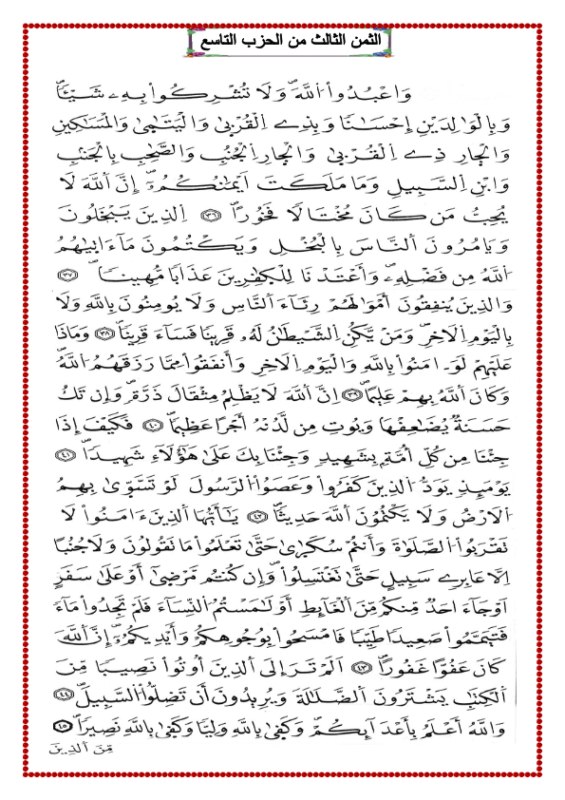 الثمن الثالث من الحزب التاسع
وَاعْبُدُواْ اللَّهَ وَلَا تُشْرِكُواْ بِهِۦ شَيْـٔاً
وَبِالْوَٰلِدَيْنِ إِحْسَٰناً وَبِذِے اِلْقُرْبَىٰ وَالْيَتَٰمَىٰ وَالْمَسَٰكِينِ
وَالْجِارِ ذِے اِلْقُرْبَىٰ وَالْجِارِ اِلْجُنُبِ وَالصَّاحِبِ بِالْجَنۢبِ
وَابْنِ اِلسَّبِيلِ وَمَا مَلَكَتَ اَيْمَٰنُكُمُۥٓ إِنَّ اَللَّهَ لَا
يُحِبُّ مَن كَانَ مُخْتَالاً فَخُوراً ٣٦ اِلذِينَ يَبْخَلُونَ
وَيَامُرُونَ اَلنَّاسَ بِالْبُخْلِ وَيَكْتُمُونَ مَآ ءَاتٜيٰهُمُ
اللَّهُ مِن فَضْلِهِۦ وَأَعْتَدْنَا لِلْكٜفِرِينَ عَذَاباً مُّهِيناً ٣٧
وَالذِينَ يُنفِقُونَ أَمْوَٰلَهُمْ رِئَآءَ اَلنَّاسِ وَلَا يُومِنُونَ بِاللَّهِ وَلَا
بِالْيَوْمِ اِلَاخِرِ وَمَنْ يَّكُنِ اِلشَّيْطَٰنُ لَهُۥ قَرِيناً فَسَآءَ قَرِيناً ٣٨ وَمَاذَا
عَلَيْهِمْ لَوَ اٰمَنُواْ بِاللَّهِ وَالْيَوْمِ اِلَاخِرِ وَأَنفَقُواْ مِمَّا رَزَقَهُمُ اُللَّهُ
وَكَانَ اَللَّهُ بِهِمْ عَلِيماً ٣٩ اِنَّ اَللَّهَ لَا يَظْلِمُ مِثْقَالَ ذَرَّةٍ وَإِن تَكُ
حَسَنَةٌ يُضَٰعِفْهَا وَيُوتِ مِن لَّدُنْهُ أَجْراً عَظِيماً ٤٠ فَكَيْفَ إِذَا
جِئْنَا مِن كُلِّ أُمَّةٍۭ بِشَهِيدٍ وَجِئْنَا بِكَ عَلَىٰ هَٰٓؤُلَآءِ شَهِيداً ٤١
يَوْمَئِذٍ يَوَدُّ اُلذِينَ كَفَرُواْ وَعَصَوُاْ اُلرَّسُولَ لَوْ تَسَّوّٜىٰ بِهِمُ
اُلَارْضُ وَلَا يَكْتُمُونَ اَللَّهَ حَدِيثاً ٤٢ يَٰٓأَيُّهَا اَلذِينَ ءَامَنُواْ لَا
تَقْرَبُواْ اُلصَّلَوٰةَ وَأَنتُمْ سُكَٰرٜىٰ حَتَّىٰ تَعْلَمُواْ مَا تَقُولُونَ وَلَا جُنُباً
اِلَّا عَابِرِے سَبِيلٍ حَتَّىٰ تَغْتَسِلُواْ وَإِن كُنتُم مَّرْضٜىٰٓ أَوْ عَلَىٰ سَفَرٍ
اَوْ جَآءَ احَدٌ مِّنكُم مِّنَ اَلْغَآئِطِ أَوْ لَٰمَسْتُمُ اُلنِّسَآءَ فَلَمْ تَجِدُواْ مَآءً
فَتَيَمَّمُواْ صَعِيداً طَيِّباً فَامْسَحُواْ بِوُجُوهِكُمْ وَأَيْدِيكُمُۥٓ إِنَّ اَللَّهَ
كَانَ عَفُوّاً غَفُوراً ٤٣ اَلَمْ تَرَ إِلَى اَلذِينَ أُوتُواْ نَصِيباً مِّنَ
اَلْكِتَٰبِ يَشْتَرُونَ اَلضَّلَٰلَةَ وَيُرِيدُونَ أَن تَضِلُّواْ اُلسَّبِيلَ ٤٤
وَاللَّهُ أَعْلَمُ بِأَعْدَآئِكُمْ وَكَفٜىٰ بِاللَّهِ وَلِيّاً وَكَفٜىٰ بِاللَّهِ نَصِيراً ٤٥
مِّنَ اَلذِينَ